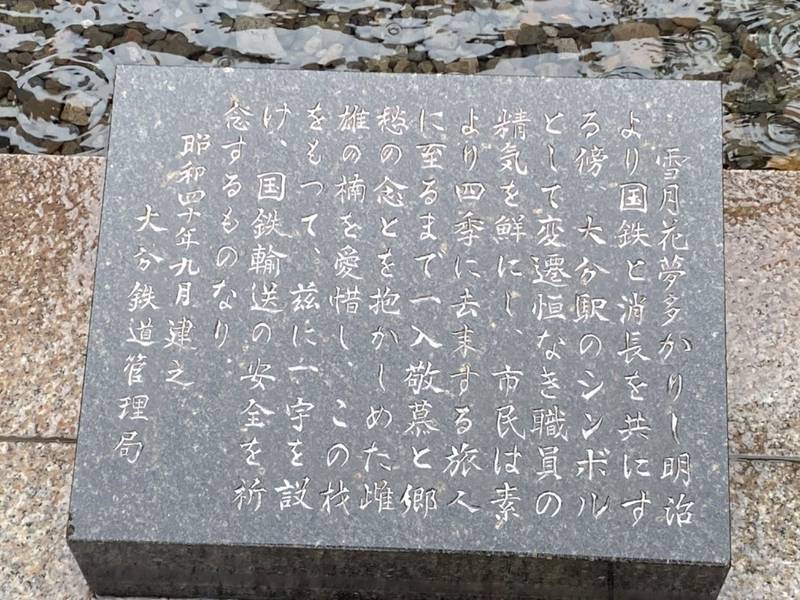 雪月花夢多かりし明治
より国鉄と消長を共にす
る傍、大分駅のシンボル
として変遷恒なき職員の
精気を鮮にし、市民は素
より四季に去来する旅人
に至るまで一入敬慕と郷
愁の念とを抱かしめた雌
雄の楠を愛惜し、この材
をもつて、茲に一宇を設
け、国鉄輸送の安全を祈
念するものなり.
昭和四十年九月建之
大分鉄道管理局